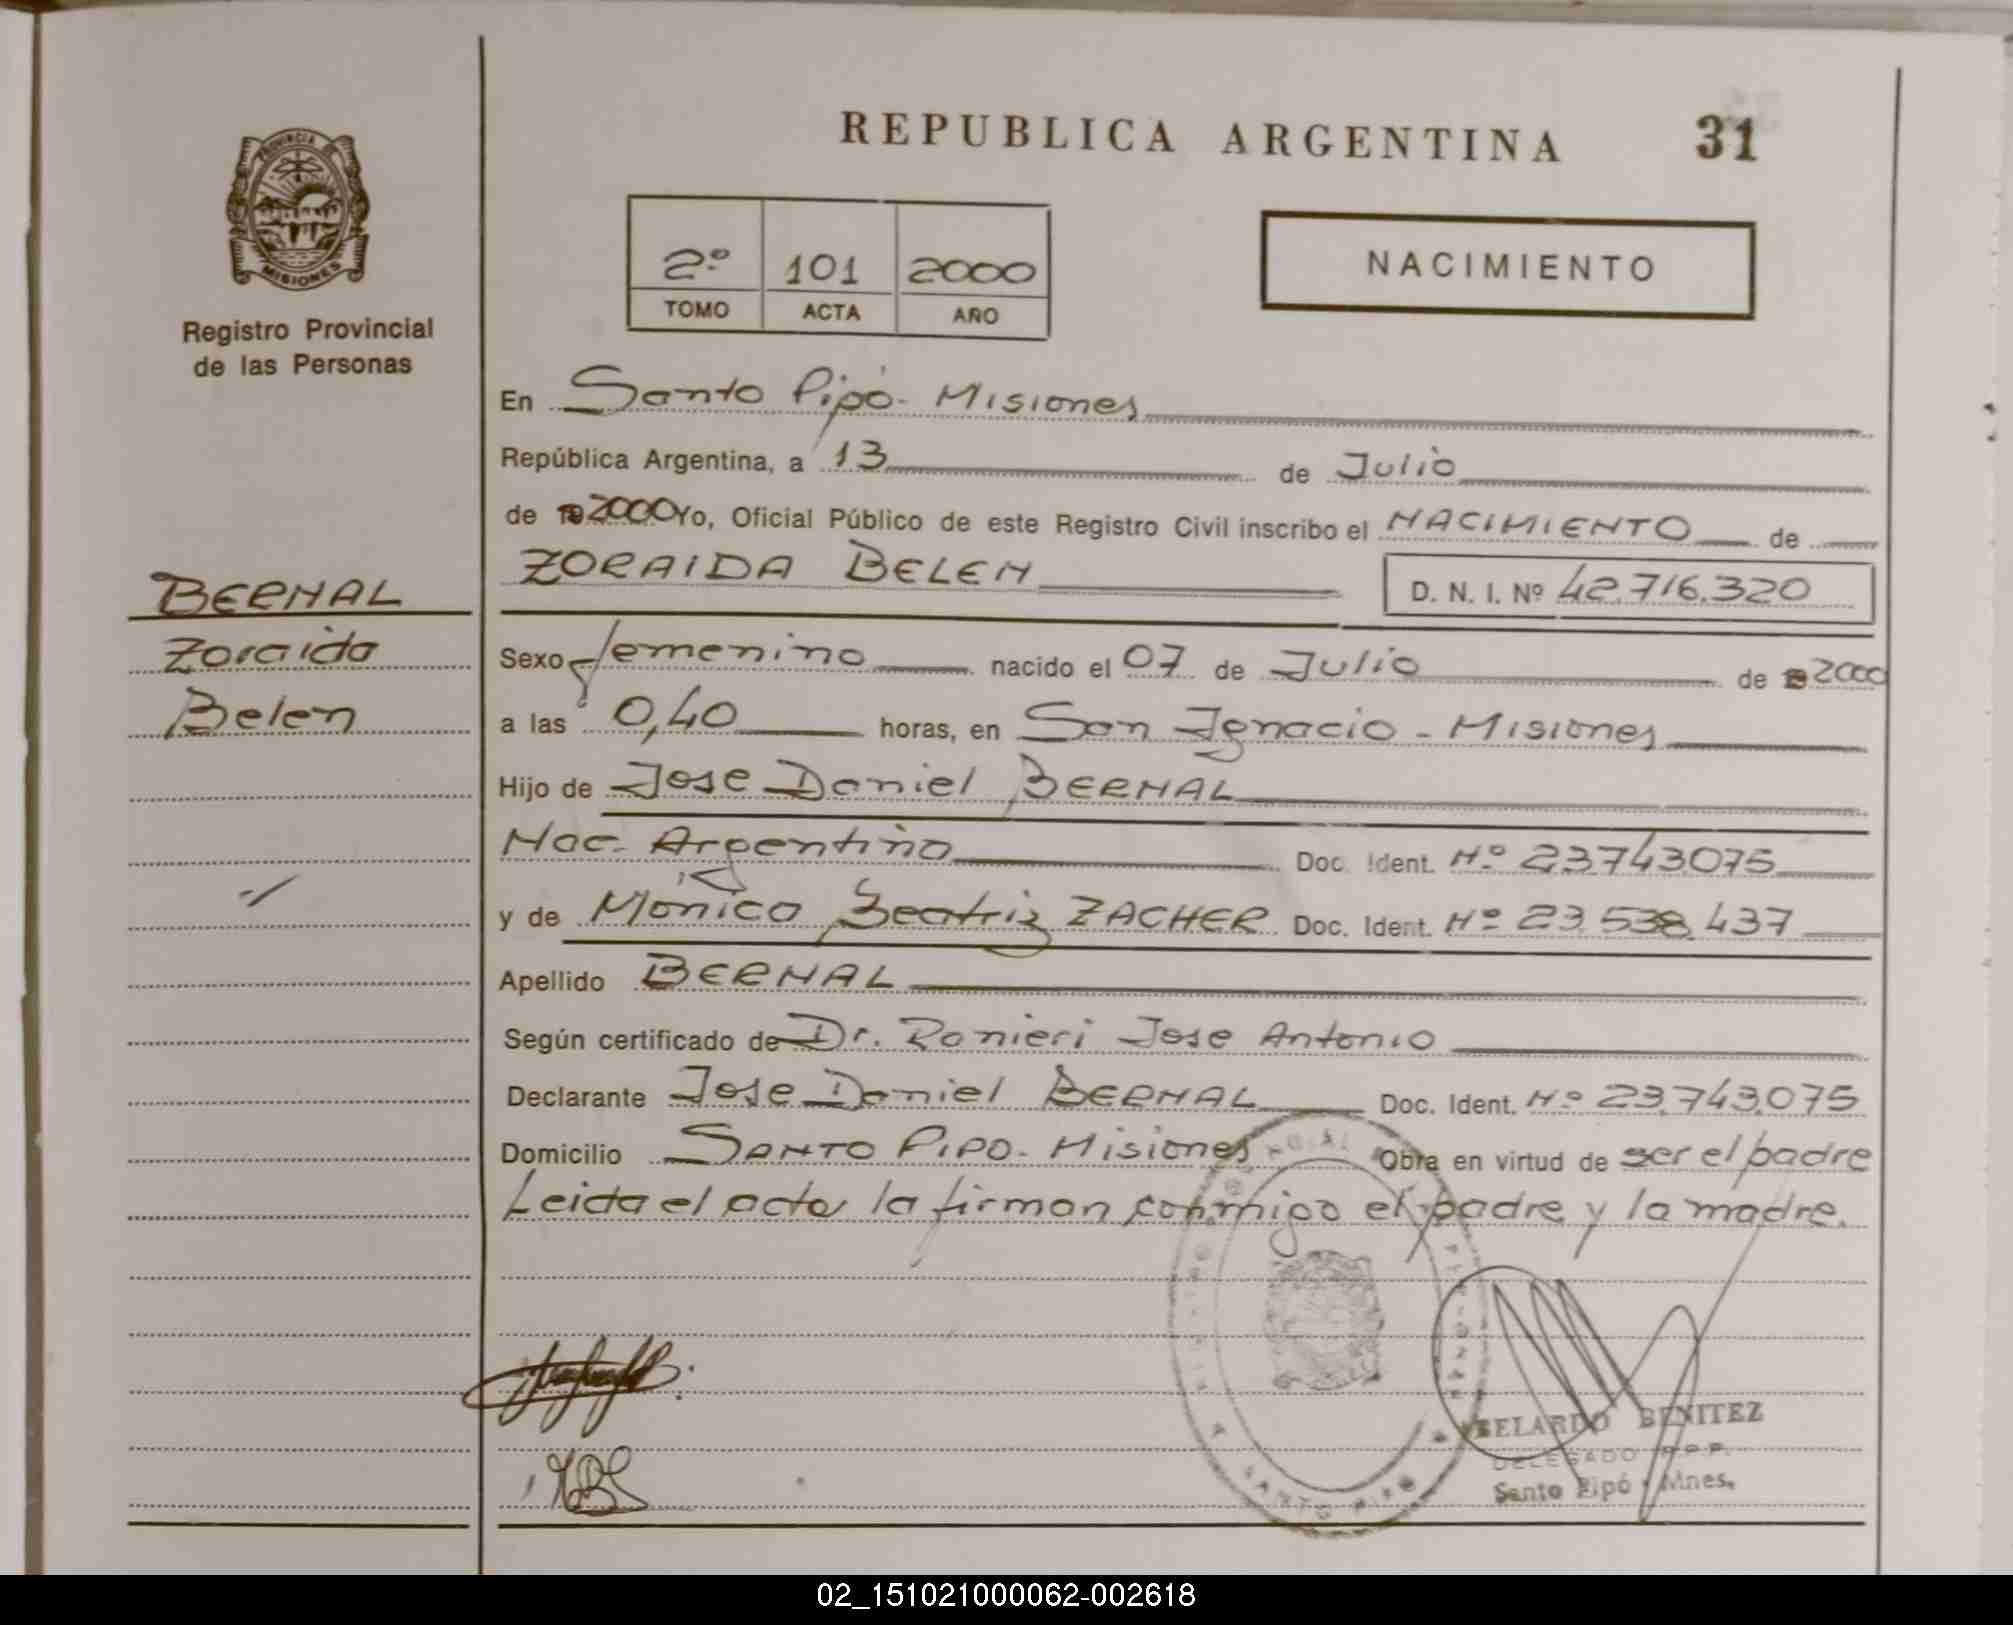 REPUBLICA ARGENTINA
31
PROVINCIA DE
MISIONES
Registro Provincial
de las Personas
2º 101 2000
TOMO ACTA AÑO
NACIMIENTO
En Santo Pipó - Misiones
República Argentina, a 13 de Julio
de 2000 Yo, Oficial Público de este Registro Civil inscribo el NACIMIENTO de
ZORAIDA BELEN D. N. I. Nº 42.716.320
BERNAL
Zoraida
Belen
Sexo femenino nacido el 07 de Julio de 2000
a las 0,40 horas, en San Ignacio - Misiones
Hijo de Jose Daniel BERNAL
Nac. Argentino Doc. Ident. Nº 23743075
y de Monica Beatriz ZACHER Doc. Ident. Nº 23.538.437
Apellido BERNAL
Según certificado de Dr. Ranieri Jose Antonio
Declarante Jose Daniel BERNAL Doc. Ident. Nº 23.743.075
Domicilio SANTO PIPO - Misiones Obra en virtud de ser el padre
Leida el acta la firman conmigo el padre y la madre.
ABELARDO BENITEZ
DELEGADO R.P.P.
Santo Pipó - Mnes.
SANTO PIPO
02_151021000062-002618